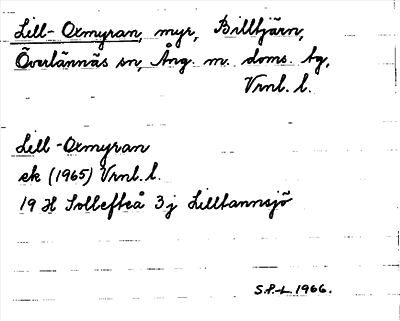 Lill-Oxmyran, myr, Billtjärn,
Överlännäs sn, Ång. m. doms. tg,
Vrnl. l.
Lill-Oxmyran
ek (1965) Vrnl. l.
19 H Sollefteå 3j Lilltannsjö
1966.